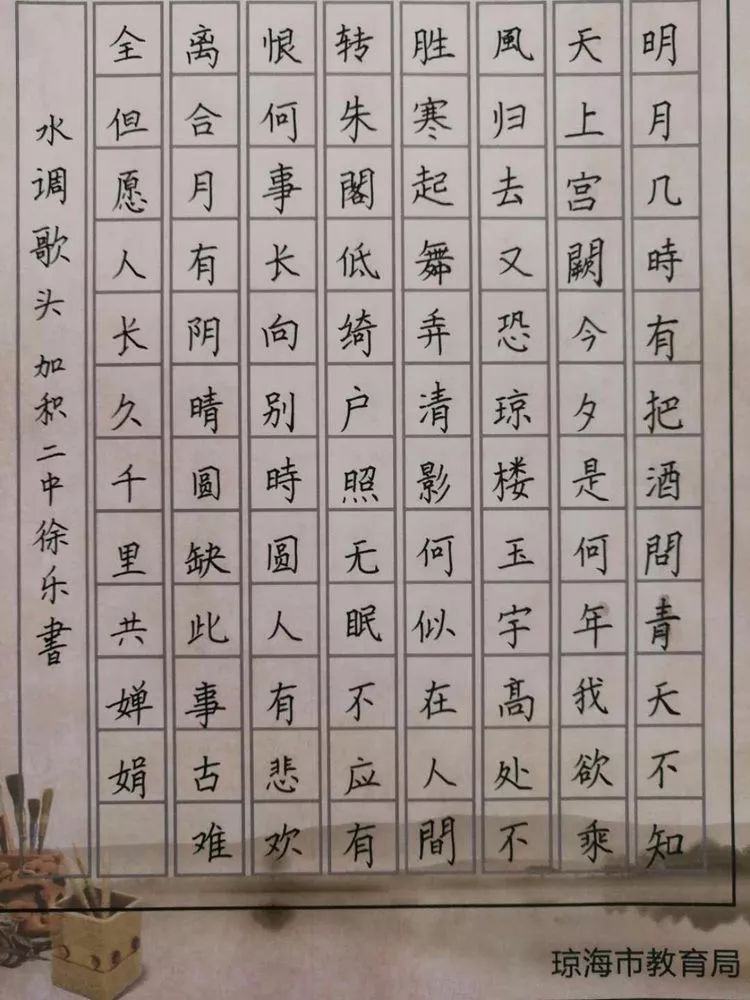 明月几時有把酒問青天不知
天上宫闕今夕是何年我欲乘
風归去又恐琼楼玉宇高处不
胜寒起舞弄清影何似在人間
转朱閣低绮户照无眠不应有
恨何事长向别時圆人有悲欢
离合月有阴晴圆缺此事古难
全但愿人长久千里共婵娟
水调歌头 加积二中徐乐書
琼海市教育局